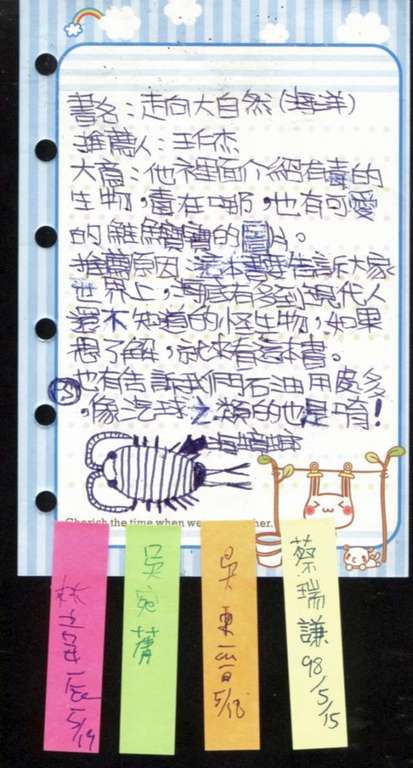 書名：走向大自然(海洋)
推薦人：王仁杰
大意：他裡面介紹有毒的
生物，毒在哪，也有可愛
的鯨鯊寶寶的圖片。
推薦原因：這本書要告訴大家
世界上，海底有多到現代人
還不知道的怪生物，如果
想了解，就來看這本書。
也有告訴我們石油用處多
，像汽球之類的也是有！
海蟑螂
Cherish the time when we
her.
5/19
吳宛菁
吳東晉
5/18
蔡瑞謙
98/5/15